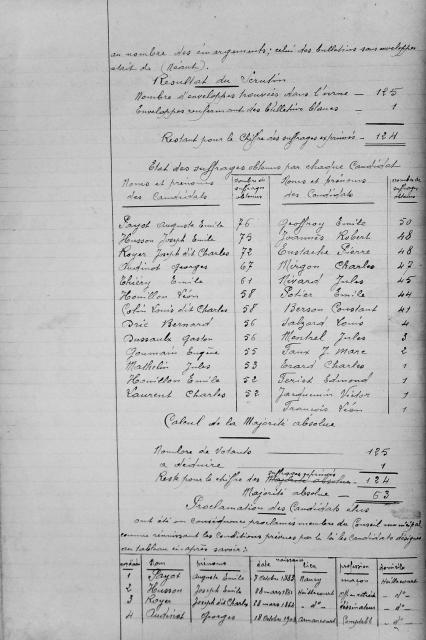 au nombre des émargements; celui des bulletins sans enveloppe
était de (Néant).
Résultat du Scrutin
Nombre d'enveloppes trouvées dans l'urne — 125
Enveloppes renfermant des bulletins blancs — 1
Restant pour le chiffre des suffrages exprimés — 124
Etat des suffrages obtenus par chaque Candidat
Noms et prénoms des Candidats nombre de suffrages obtenus Noms et prénoms des Candidats nombre de suffrages obtenus
Payot Auguste Emile 76 Geoffroy Emile 50
Husson Joseph Emile 75 Joannès Robert 48
Royer Joseph dit Charles 72 Eustache Pierre 48
Audinot Georges 67 Mirgon Charles 47
Thiéry Emile 61 Nivard Jules 45
Houillon Léon 58 Potier Emile 44
Colin Louis dit Charles 58 Berson Constant 41
Bernard 56 Salzard Louis 4
Dussaulx Gaston 56 Mentrel Jules 3
Goumain Eugène 55 J. Marc 2
Mathelin Jules 53 Erard Charles 1
Houillon Emile 52 Edmond 1
Laurent Charles 52 Victor 1
François Léon 1
Calcul de la Majorité absolue
Nombre de Votants — 125
a déduire 1
suffrages exprimés
Reste pour le chiffre des Majorité absolue — 124
Majorité absolue — 63
Proclamation des Candidats élus
ont été en conséquence proclamés membre du Conseil municipal
comme réunissant les conditions prévues par la loi les Candidats désignés
au tableau ci-après savoir:
noms prénoms date naissance lieu profession domicile
1 Payot Auguste Emile 7 Octobre maçon
2 Husson Joseph Emile 18 mars — d° — — d° —
3 Royer Joseph dit Charles 18 mars — d° — — d° —
4 Audinot Georges 18 Octobre — d° —